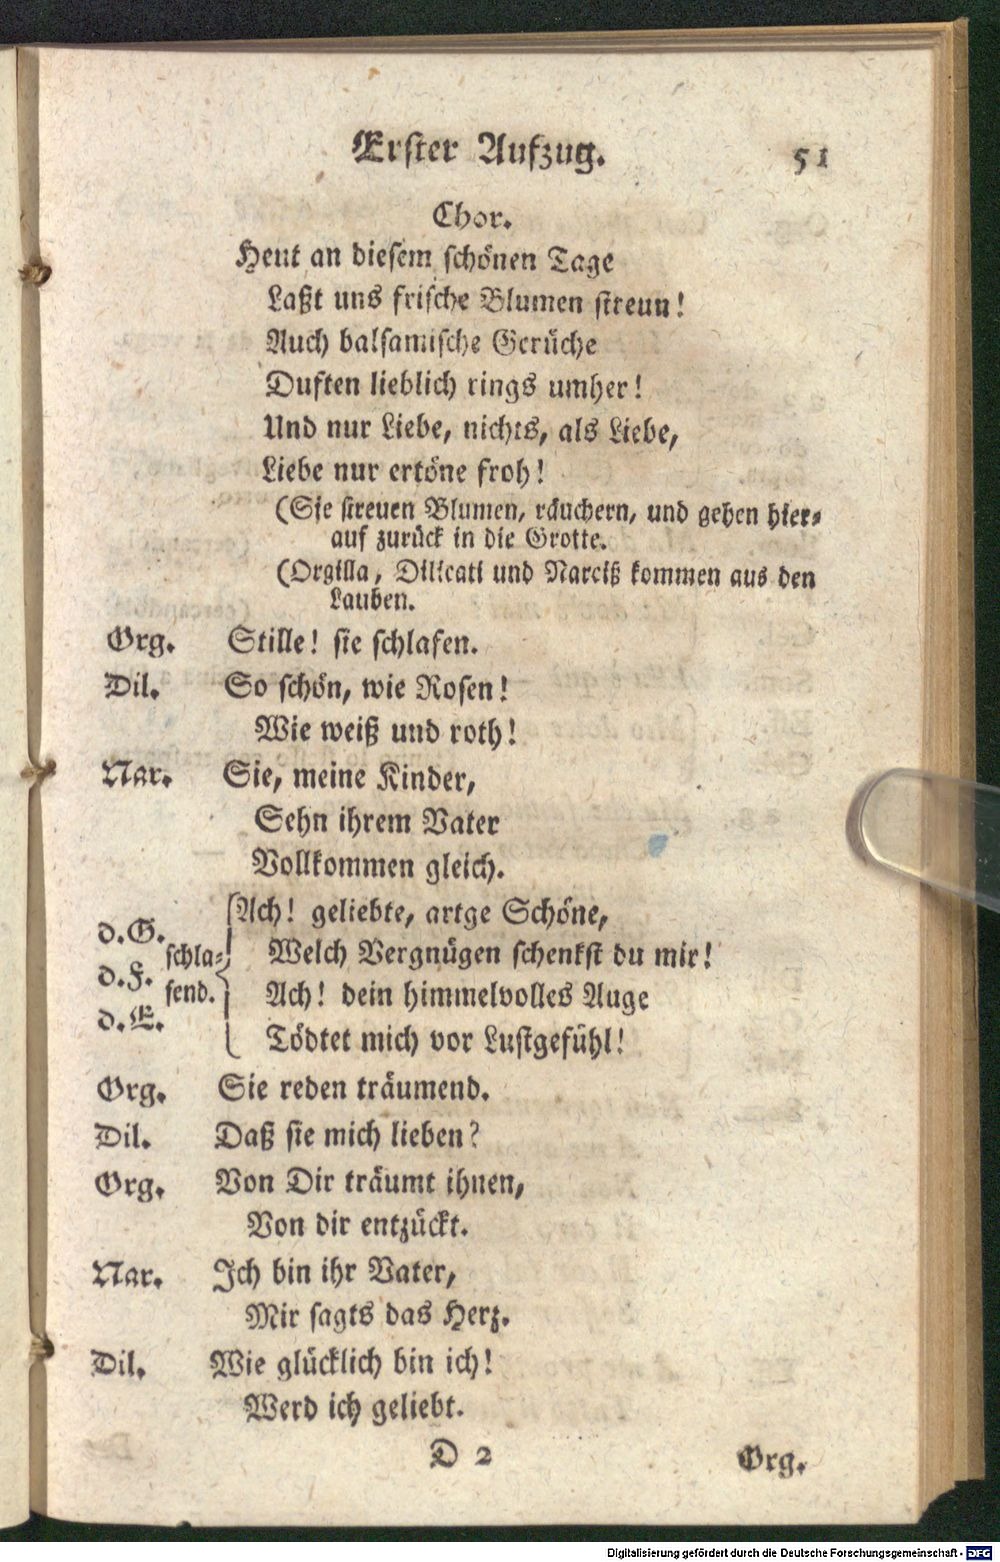 Erster Aufzug. 51
Chor.
Heut an diesem schönen Tage
Laßt uns frische Blumen streun!
Auch balsamische Gerüche
Duften lieblich rings umher!
Und nur Liebe, nichts, als Liebe,
Liebe nur ertöne froh!
(Sie streuen Blumen, räuchern, und gehen hier-
auf zurück in die Grotte.
(Orgilla, Dilicati und Narciß kommen aus den
Lauben.
Org. Stille! sie schlafen.
Dil. So schön, wie Rosen!
Wie weiß und roth!
Nar. Sie, meine Kinder,
Sehn ihrem Vater
Vollkommen gleich.
d.G. Ach! geliebte, artge Schöne,
schla- Welch Vergnügen schenkst du mir!
d.F. fend. Ach! dein himmelvolles Auge
d.E. Tödtet mich vor Lustgefühl!
Org. Sie reden träumend.
Dil. Daß sie mich lieben?
Org. Von Dir träumt ihnen,
Von dir entzückt.
Nar. Ich bin ihr Vater,
Mir sagts das Herz.
Dil. Wie glücklich bin ich!
Werd ich geliebt.
D 2 Org.
Digitalisierung gefördert durch die Deutsche Forschungsgemeinschaft - DFG